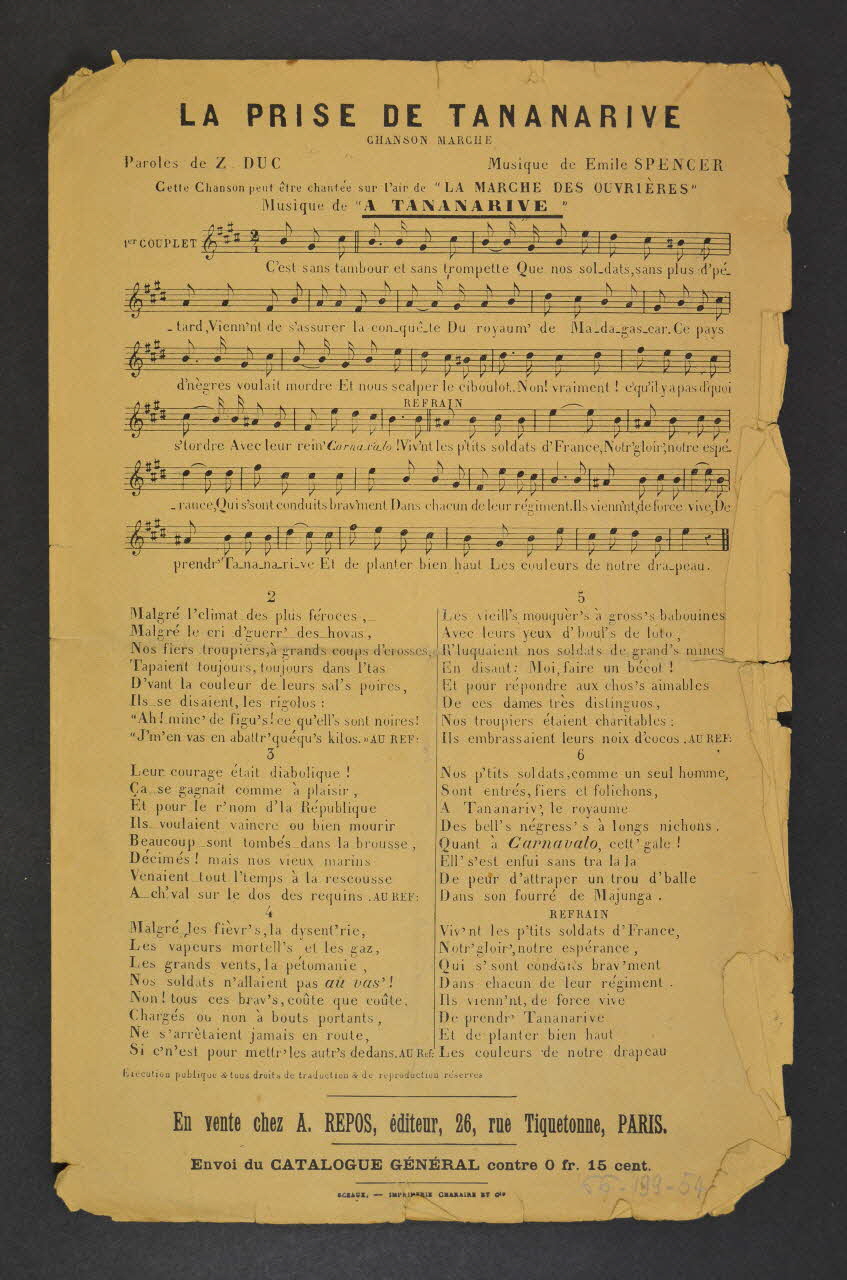 LA PRISE DE TANANARIVE
CHANSON MARCHE
Paroles de Z. DUC
Musique de Emile SPENCER
Cette Chanson peut être chantée sur l'air de "LA MARCHE DES OUVRIÈRES"
Musique de "A TANANARIVE"
1er COUPLET
C'est sans tambour et sans trompette Que nos sol_dats, sans plus d'pé_
_tard, Vienn'nt de s'assurer la con_quê_te Du royaum' de Ma_da_gas_car. Ce pays
d'nègres voulait mordre Et nous scalper le ciboulot. Non! vraiment! c'qu'il y a pas d'quoi
REFRAIN
s'tordre Avec leur rein' Carnavalo! Viv'nt les p'tits soldats d'France, Notr'gloir', notre espé_
_rance, Qui s'sont conduits brav'ment Dans chacun de leur régiment. Ils vienn'nt, de force vive, De
prendr' Ta_na_na_ri_ve Et de planter bien haut Les couleurs de notre dra_peau.
2
Malgré l'climat des plus féroces,
Malgré le cri d'guerr' des hovas,
Nos fiers troupiers, à grands coups d'crosses,
Tapaient toujours, toujours dans l'tas
D'vant la couleur de leurs sal's poires,
Ils se disaient, les rigolos:
"Ah! minc' de figu's! ce qu'ell's sont noires!
"J'm'en vas en abattr' quéqu's kilos.» AU REF:
3
Leur courage était diabolique!
Ça se gagnait comme à plaisir,
Et pour le r'nom d'la République
Ils voulaient vaincre ou bien mourir
Beaucoup sont tombés dans la brousse,
Décimés! mais nos vieux marins
Venaient tout l'temps à la rescousse
A ch'val sur le dos des requins. AU REF:
4
Malgré les fièvr's, la dysent'rie,
Les vapeurs mortell's et les gaz,
Les grands vents, la pétomanie,
Nos soldats n'allaient pas aù vas'!
Non! tous ces brav's, coûte que coûte,
Chargés ou non à bouts portants,
Ne s'arrêtaient jamais en route,
Si c'n'est pour mettr' les autr's dedans. AU Ref:
5
Les vieill's mouquèr's à gross's babouines
Avec leurs yeux d'boul's de loto,
R'luquaient nos soldats de grand's mines
En disant: Moi, faire un bécot!
Et pour répondre aux chos's aimables
De ces dames très distinguos,
Nos troupiers étaient charitables:
Ils embrassaient leurs noix d'cocos. AU REF:
6
Nos p'tits soldats, comme un seul homme,
Sont entrés, fiers et folichons,
A Tananariv', le royaume
Des bell's négress's à longs nichons.
Quant à Carnavalo, cett' gale!
Ell' s'est enfui sans tra la la
De peur d'attraper un trou d'balle
Dans son fourré de Majunga.
REFRAIN
Viv'nt les p'tits soldats d'France,
Notr' gloir', notre espérance,
Qui s'sont conduits brav'ment
Dans chacun de leur régiment.
Ils vienn'nt, de force vive
De prendr' Tananarive
Et de planter bien haut
Les couleurs de notre drapeau
Exécution publique & tous droits de traduction & de reproduction réservés
En vente chez A. REPOS, éditeur, 26, rue Tiquetonne, PARIS.
Envoi du CATALOGUE GÉNÉRAL contre 0 fr. 15 cent.
SCEAUX. — IMPRIMERIE CHARAIRE ET Cie